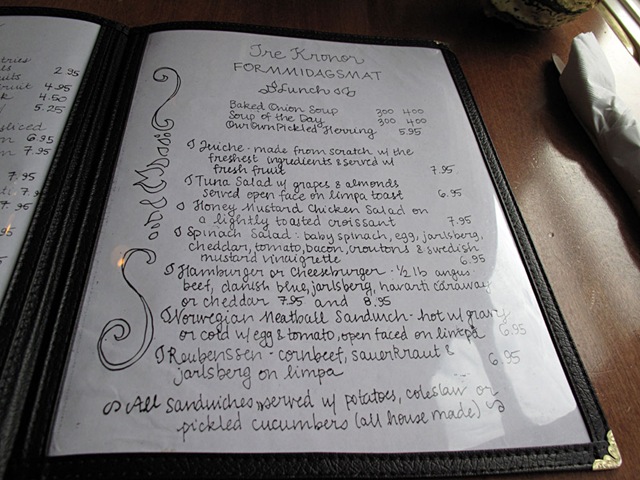 2.95
fruit 4.95
4.50
5.25
sliced
6.95
7.95
7.95
7.95
Tre Kronor
FORMMIDAGSMAT
Lunch
Baked Onion Soup 300 400
Soup of the Day 300 400
Our Own Pickled Herring 5.95
Quiche - made from scratch w/ the
freshest ingredients & served w/
fresh fruit 7.95
Tuna Salad w/ grapes & almonds
served open face on limpa toast 6.95
Honey Mustard Chicken Salad on
a lightly toasted croissant 7.95
Spinach Salad: baby spinach, egg, jarlsberg,
cheddar, tomato, bacon, croutons & swedish
mustard vinaigrette 6.95
Hamburger or Cheeseburger - 1/2 lb angus
beef, danish blue, jarlsberg, havarti caraway
or cheddar 7.95 and 8.95
Norwegian Meatball Sandwich - hot w/ gravy
or cold w/ egg & tomato, open faced on limpa 6.95
Reubenssen - cornbeef, sauerkraut &
jarlsberg on limpa 6.95
All sandwiches served w/ potatoes, coleslaw or
pickled cucumbers (all house made)